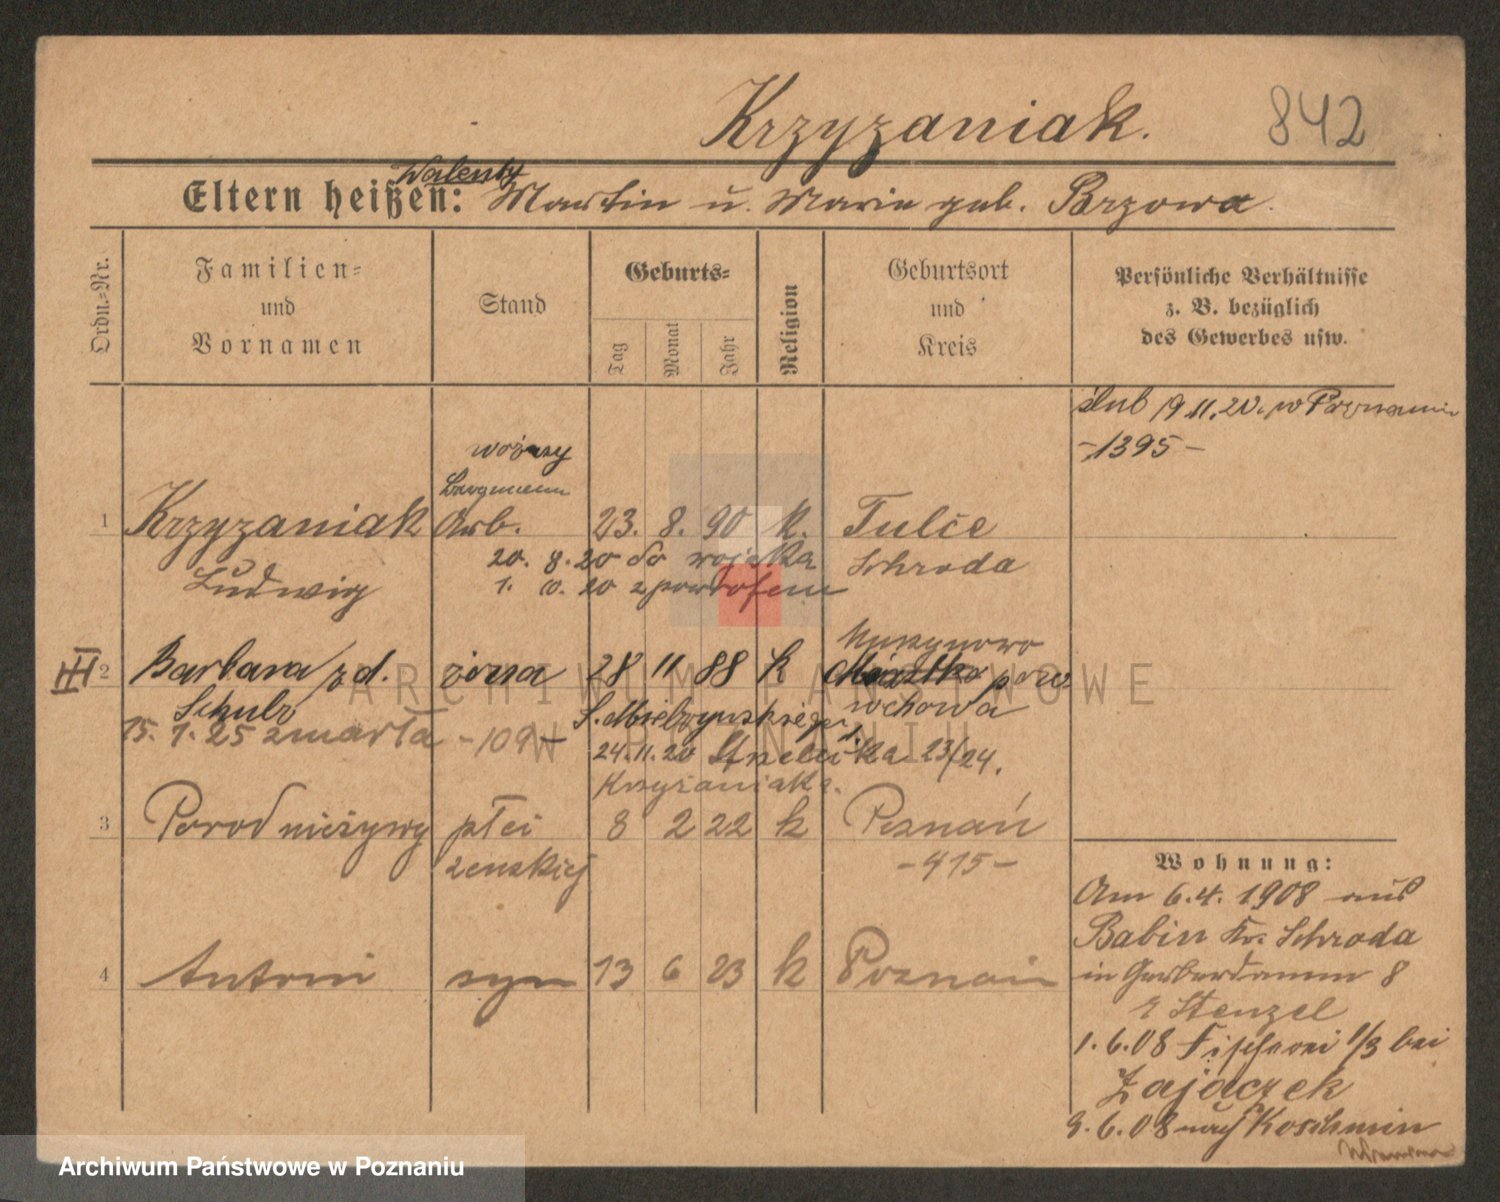 Krzyzaniak. 842
Walenty
Eltern heißen: Martin u. Marie geb. Brzowa.
Ordn.-Nr.
Familien-
und
Vornamen
Stand
Geburts-
Tag
Monat
Jahr
Religion
Geburtsort
und
Kreis
Persönliche Verhältnisse
z. B. bezüglich
des Gewerbes usw.
ślub 19 11. 20. w Poznaniu
-1395-
woźny
1 Krzyzaniak Arb. 23. 8. 90 k. Tulce
Ludwig Schroda
20. 8. 20 do wojska
1. 10. 20 z powrotem
III 2 Barbara z d. żona 28 11 88 k
Schulz
pow
Wschowa
15. 1. 25 zmarła -109-
S. Mielzynskiego
24. 11. 20 Strzelecka 23/24.
Krzyżaniaka.
3 Porod nieżywy płci 8 2 22 k Poznań
zenskiej -415-
4 Antoni syn 13 6 23 k Poznań
Wohnung:
Am 6. 4. 1908 aus
Babin Kr. Schroda
in Gerberdamm 8
Stenzel
1. 6. 08 Fischerei 1/3 bei
Zajączek
9. 6. 08 nach Koschmin
ARCHIWUM PAŃSTWOWE
W POZNANIU
Archiwum Państwowe w Poznaniu